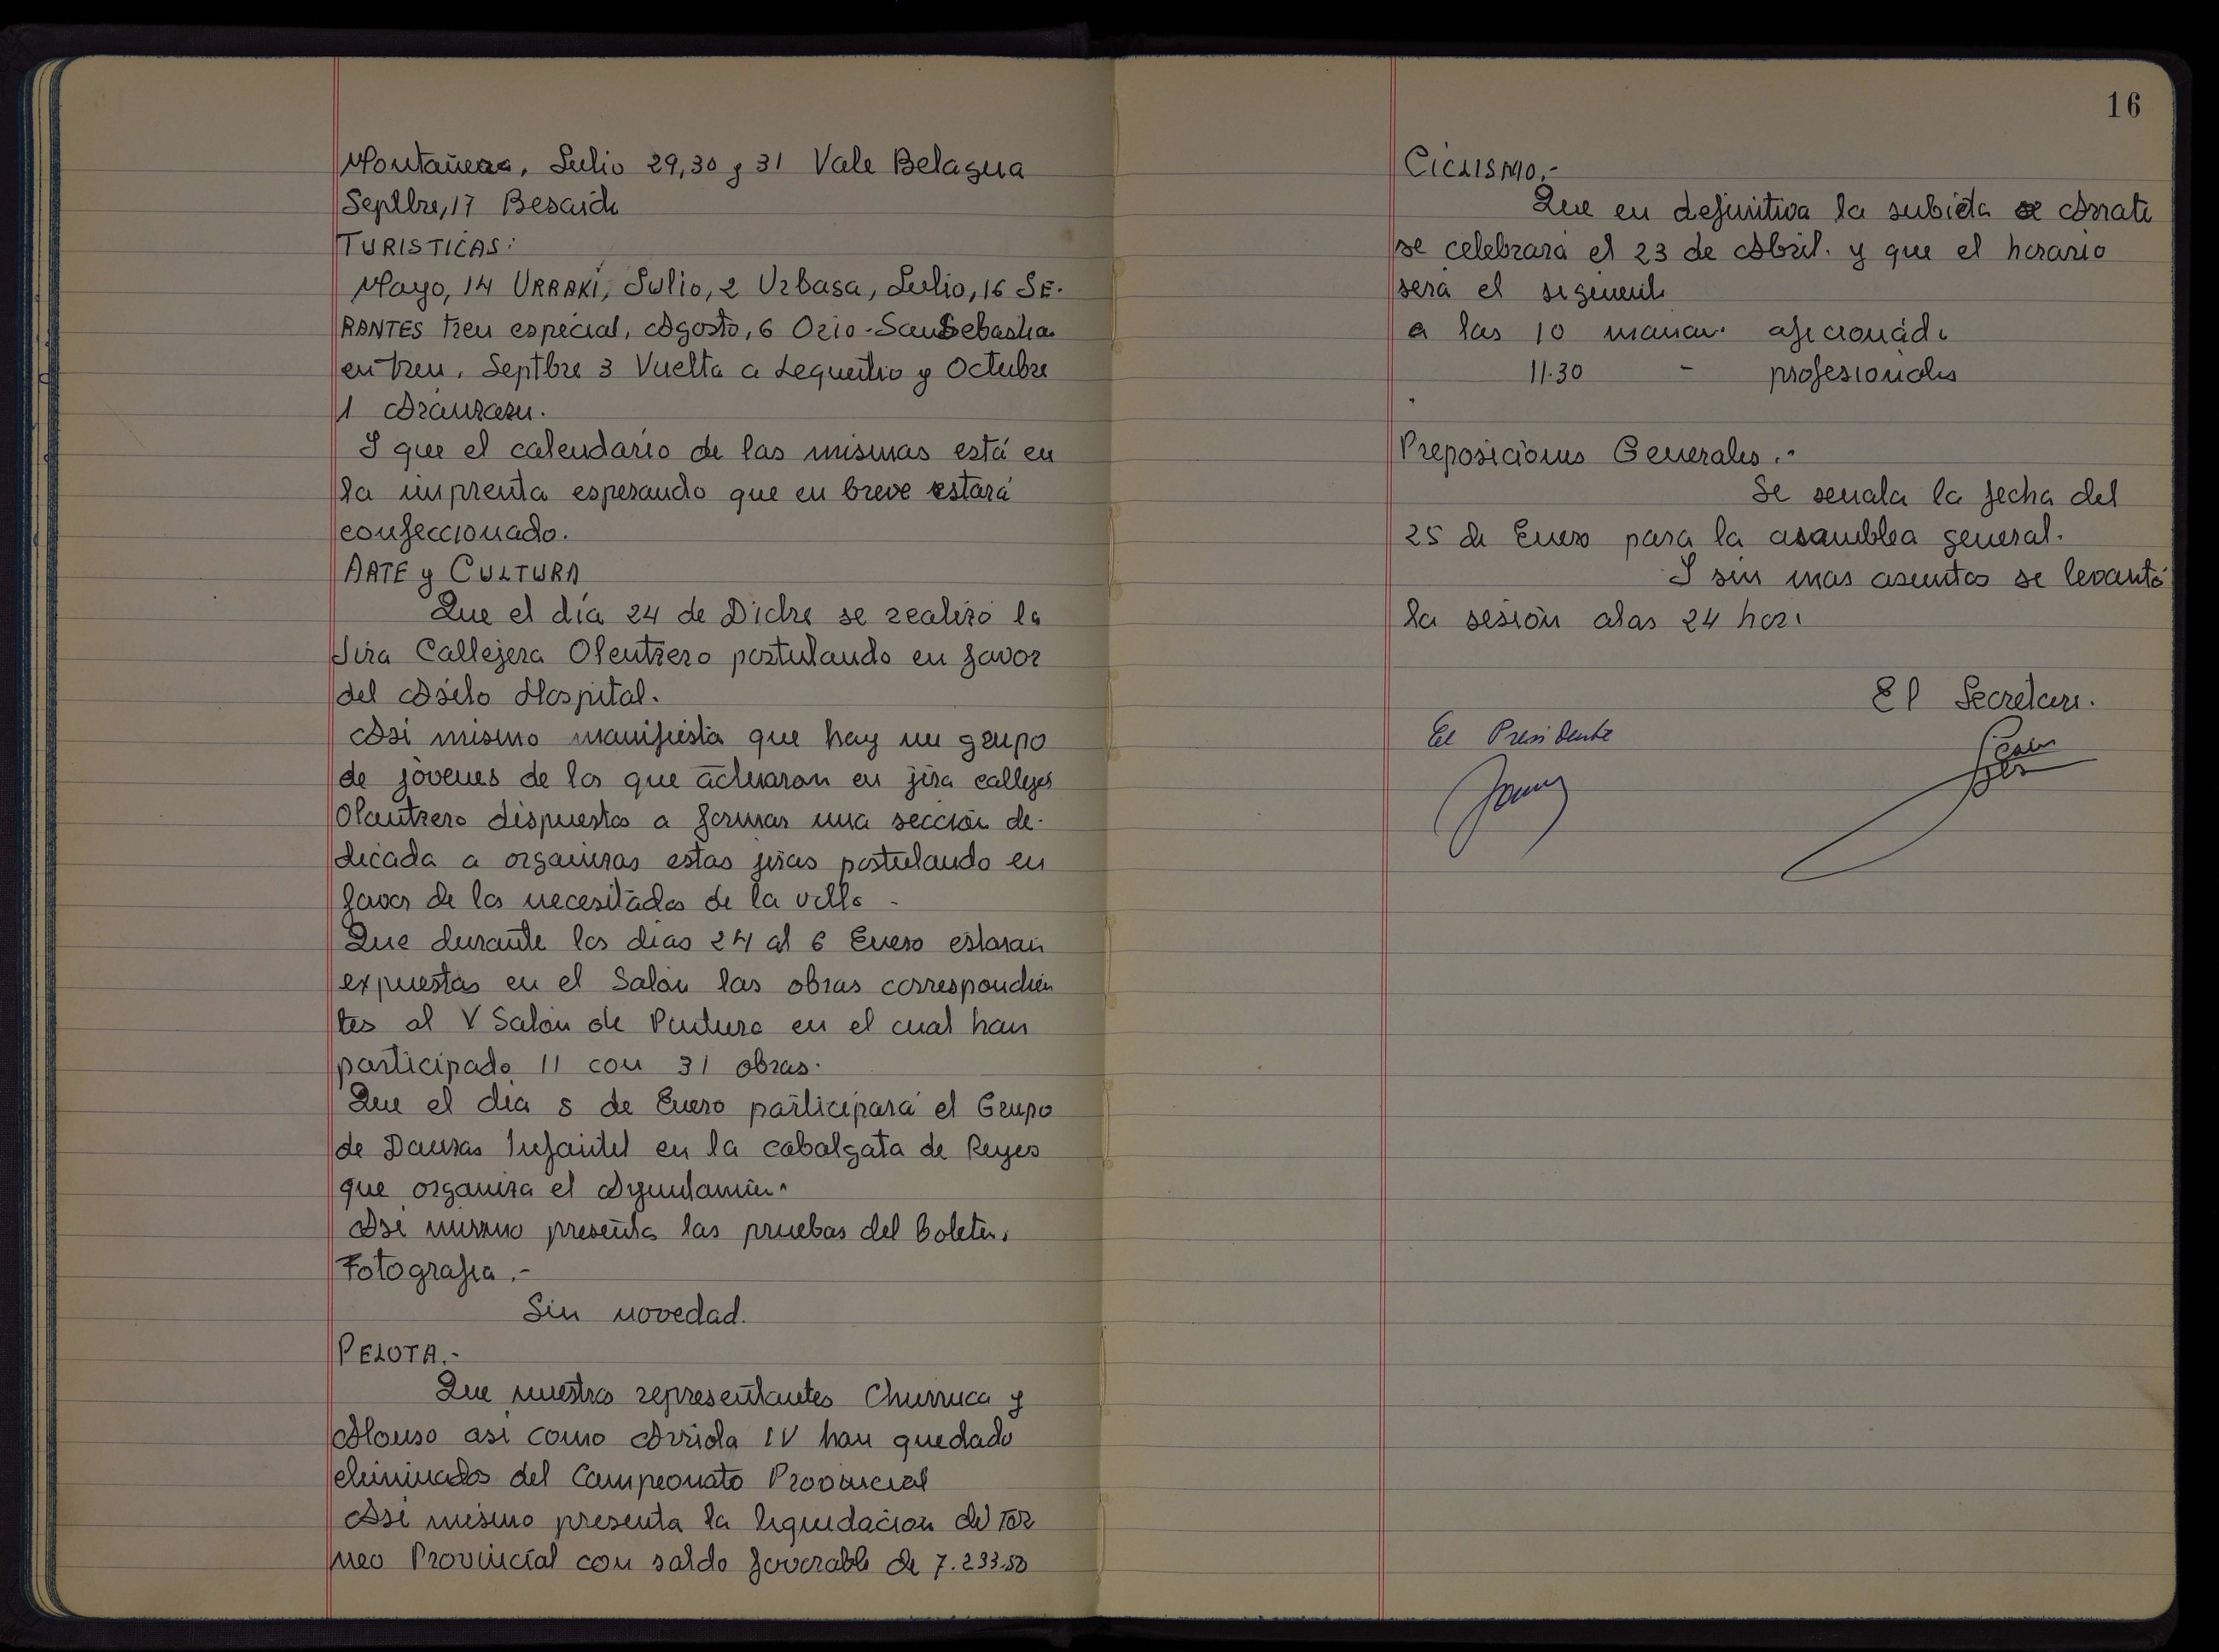 Montañera, Julio 29,30 y 31 Vale Belagua
Septbre, 17 Besaide
TURISTICAS:
Mayo, 14 URRAKI, Julio, 2 Urbasa, Julio, 16 SE-
RANTES tren especial, Agosto, 6 Orio-San Sebastian
en tren, Septbre 3 Vuelta a Lequeitio y Octubre
1 Aranzazu.
I que el calendario de las mismas está en
la imprenta esperando que en breve estará
confeccionado.
ARTE y CULTURA
Que el día 24 de Dicbre se realizó la
Jira Callejera Olentzero postulando en favor
del Asilo Hospital.
Asi mismo manifiesta que hay un grupo
de jóvenes de los que actuaron en jira calleje
Olentzero dispuestos a formar una sección de-
dicada a organizar estas jiras postulando en
favor de los necesitados de la villa -
Que durante los dias 24 al 6 Enero estaran
expuestas en el Salón las obras correspondien
tes al V Salón de Pintura en el cual han
participado 11 con 31 obras.
Que el día 5 de Enero participará el Grupo
de Danzas Infantil en la cabalgata de Reyes
que organiza el Ayuntamien.
Asi mismo presenta las pruebas del boletin.
Fotografia.-
Sin novedad.
PELOTA.-
Que nuestros representantes Churruca y
Alonso asi como Arriola IV han quedado
eliminados del Campeonato Provincial
Asi mismo presenta la liquidacion del Tor
neo Provincial con saldo favorable de 7.233.50
16
CICLISMO.-
Que en definitiva la subida a Arrate
se celebrará el 23 de Abril. y que el horario
será el siguiente
a las 10 mañan. aficionado
11.30 - profesionales
Preposiciones Generales.-
Se senala la fecha del
25 de Enero para la asamblea general.
I sin mas asuntos se levantó
la sesión alas 24 hor.
El Secretari.
El Presidente